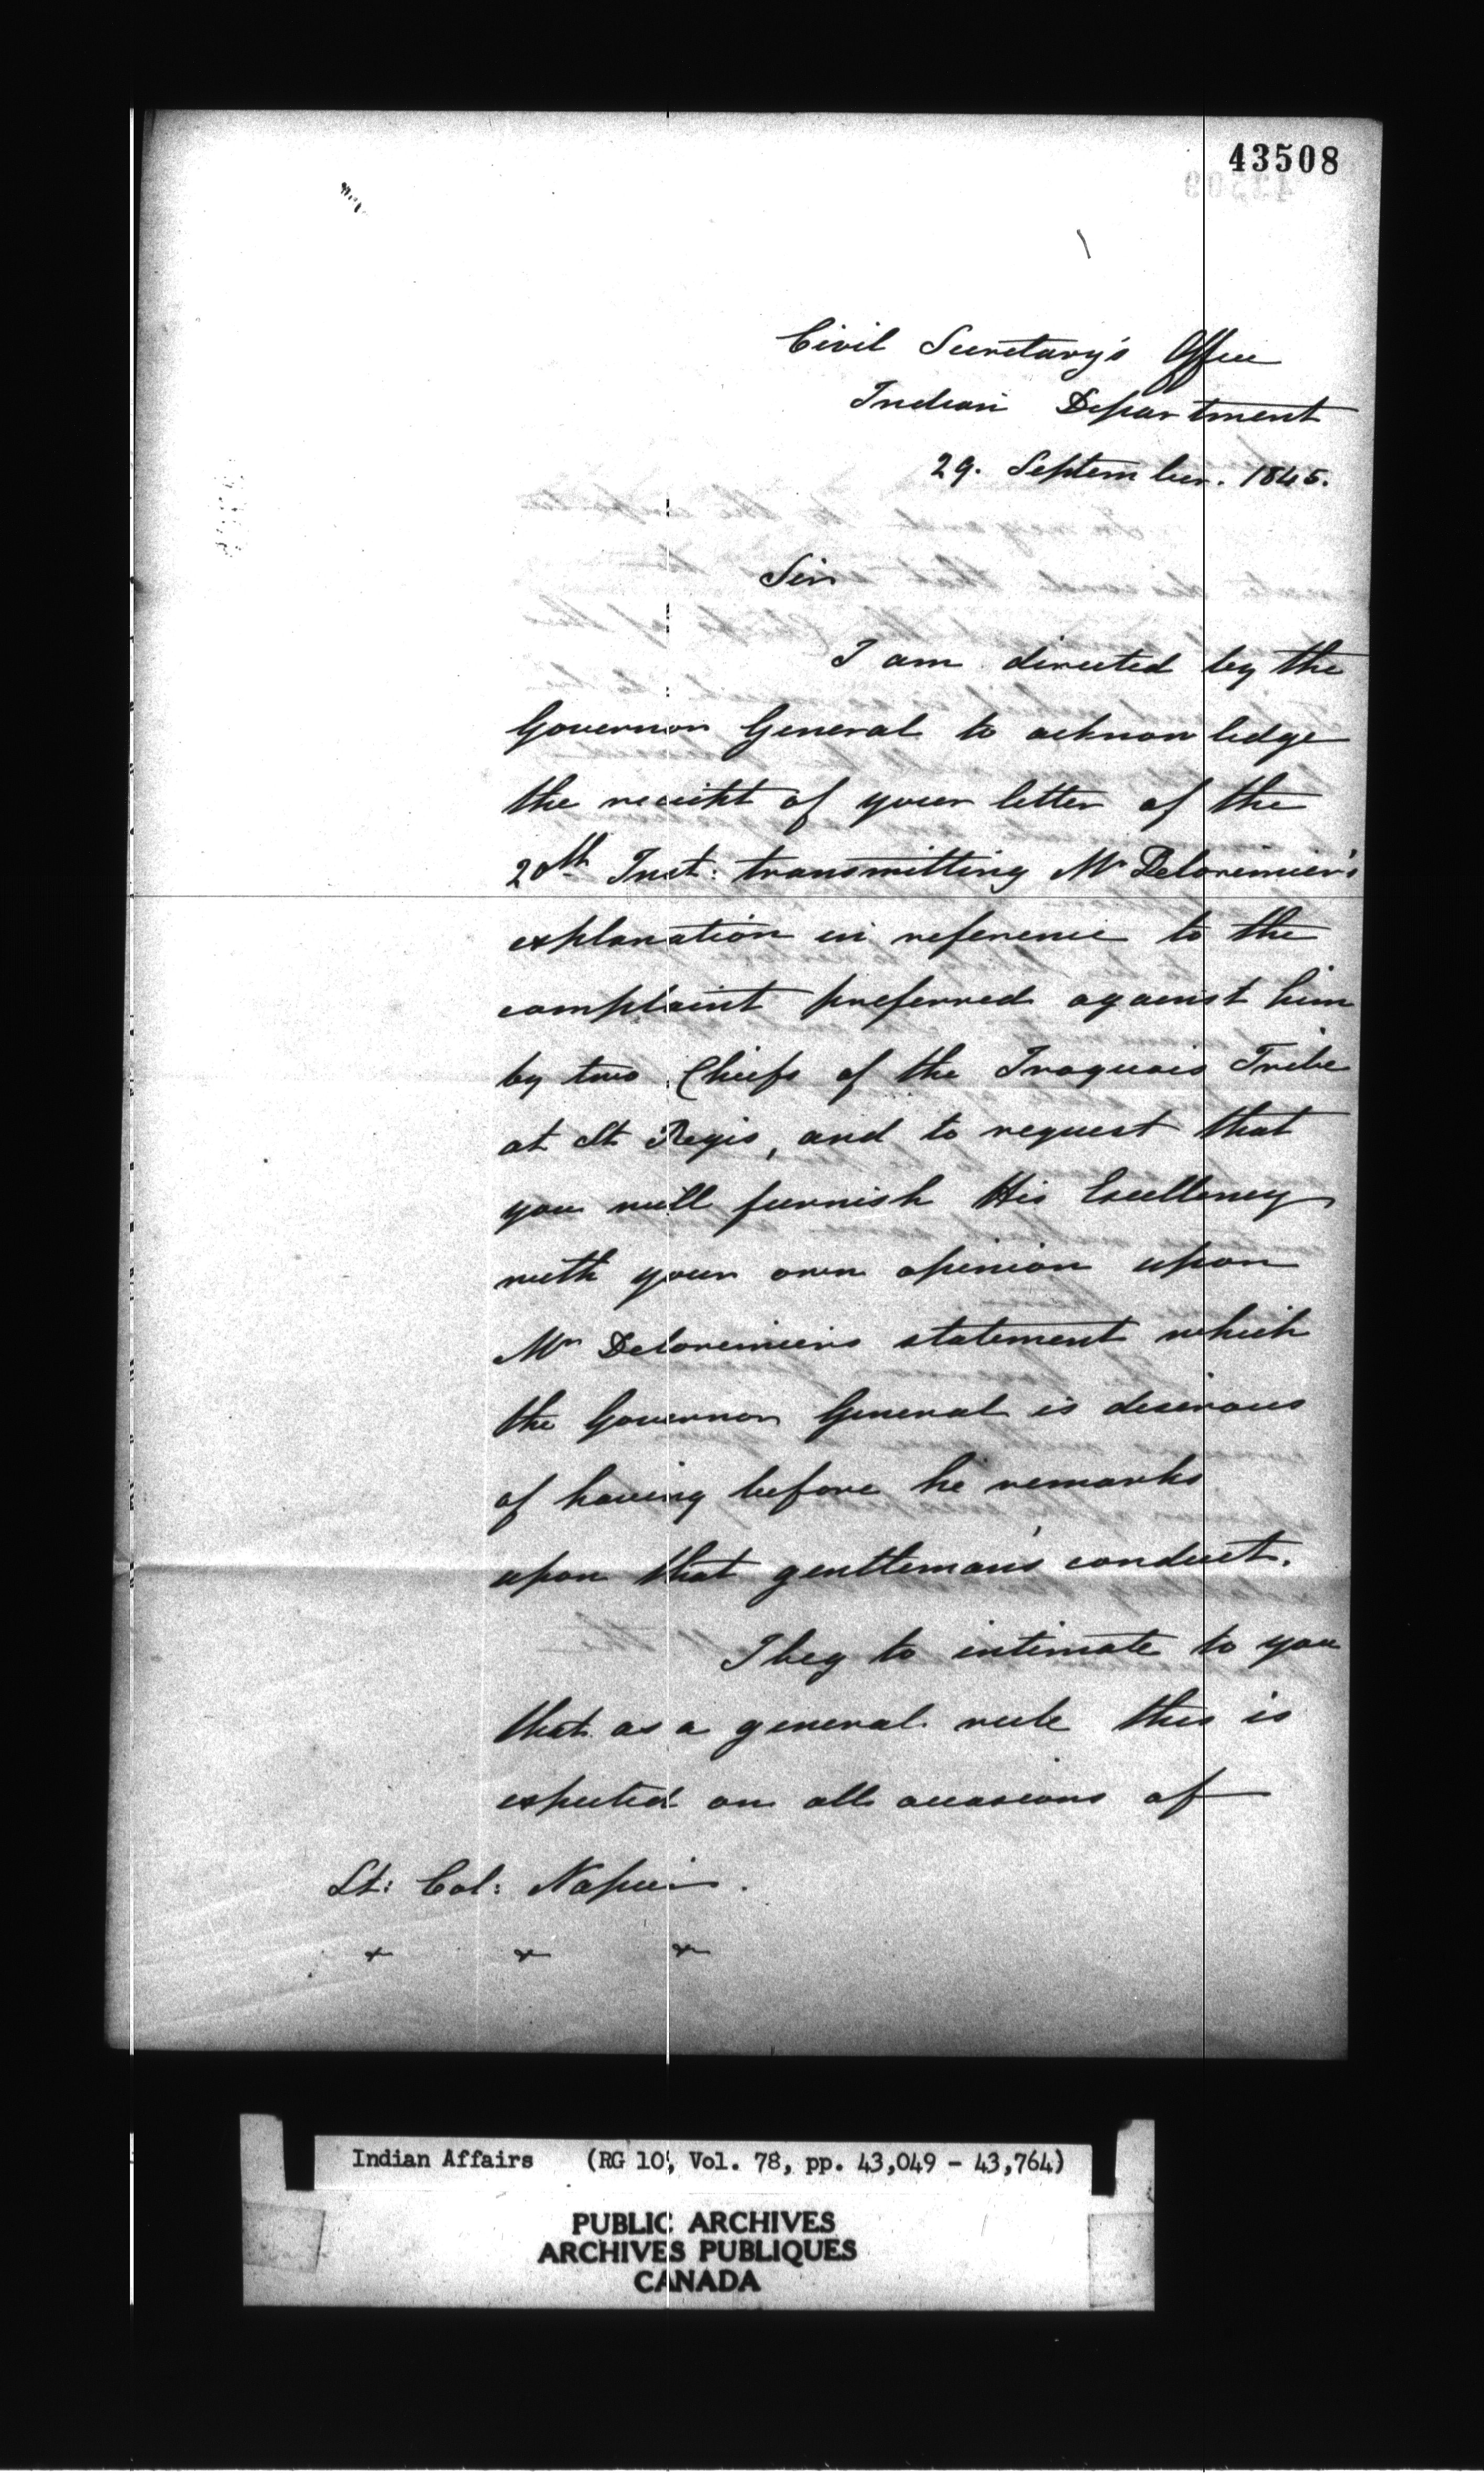 43508
Civil Secretary's Office
Indian Department
29. September. 1845.
Sir
I am directed by the
Governor General to acknowledge
the receipt of your letter of the
Inst: transmitting Mr Delorimier's
explanation in reference to the
complaint preferred against him
by two Chiefs of the Iroquois Tribe
at St Regis, and to request that
you will furnish His Excellency
with your own opinion upon
Mr Delorimiers statement which
the Governor General is desirous
of having before he remarks
upon that gentleman's conduct.
I beg to intimate to you
that as a general rule this is
expected on all occasions of
Lt: Col: Napier.
Indian Affairs (RG 10, Vol. 78, pp. 43,049 - 43,764)
PUBLIC ARCHIVES
ARCHIVES PUBLIQUES
CANADA